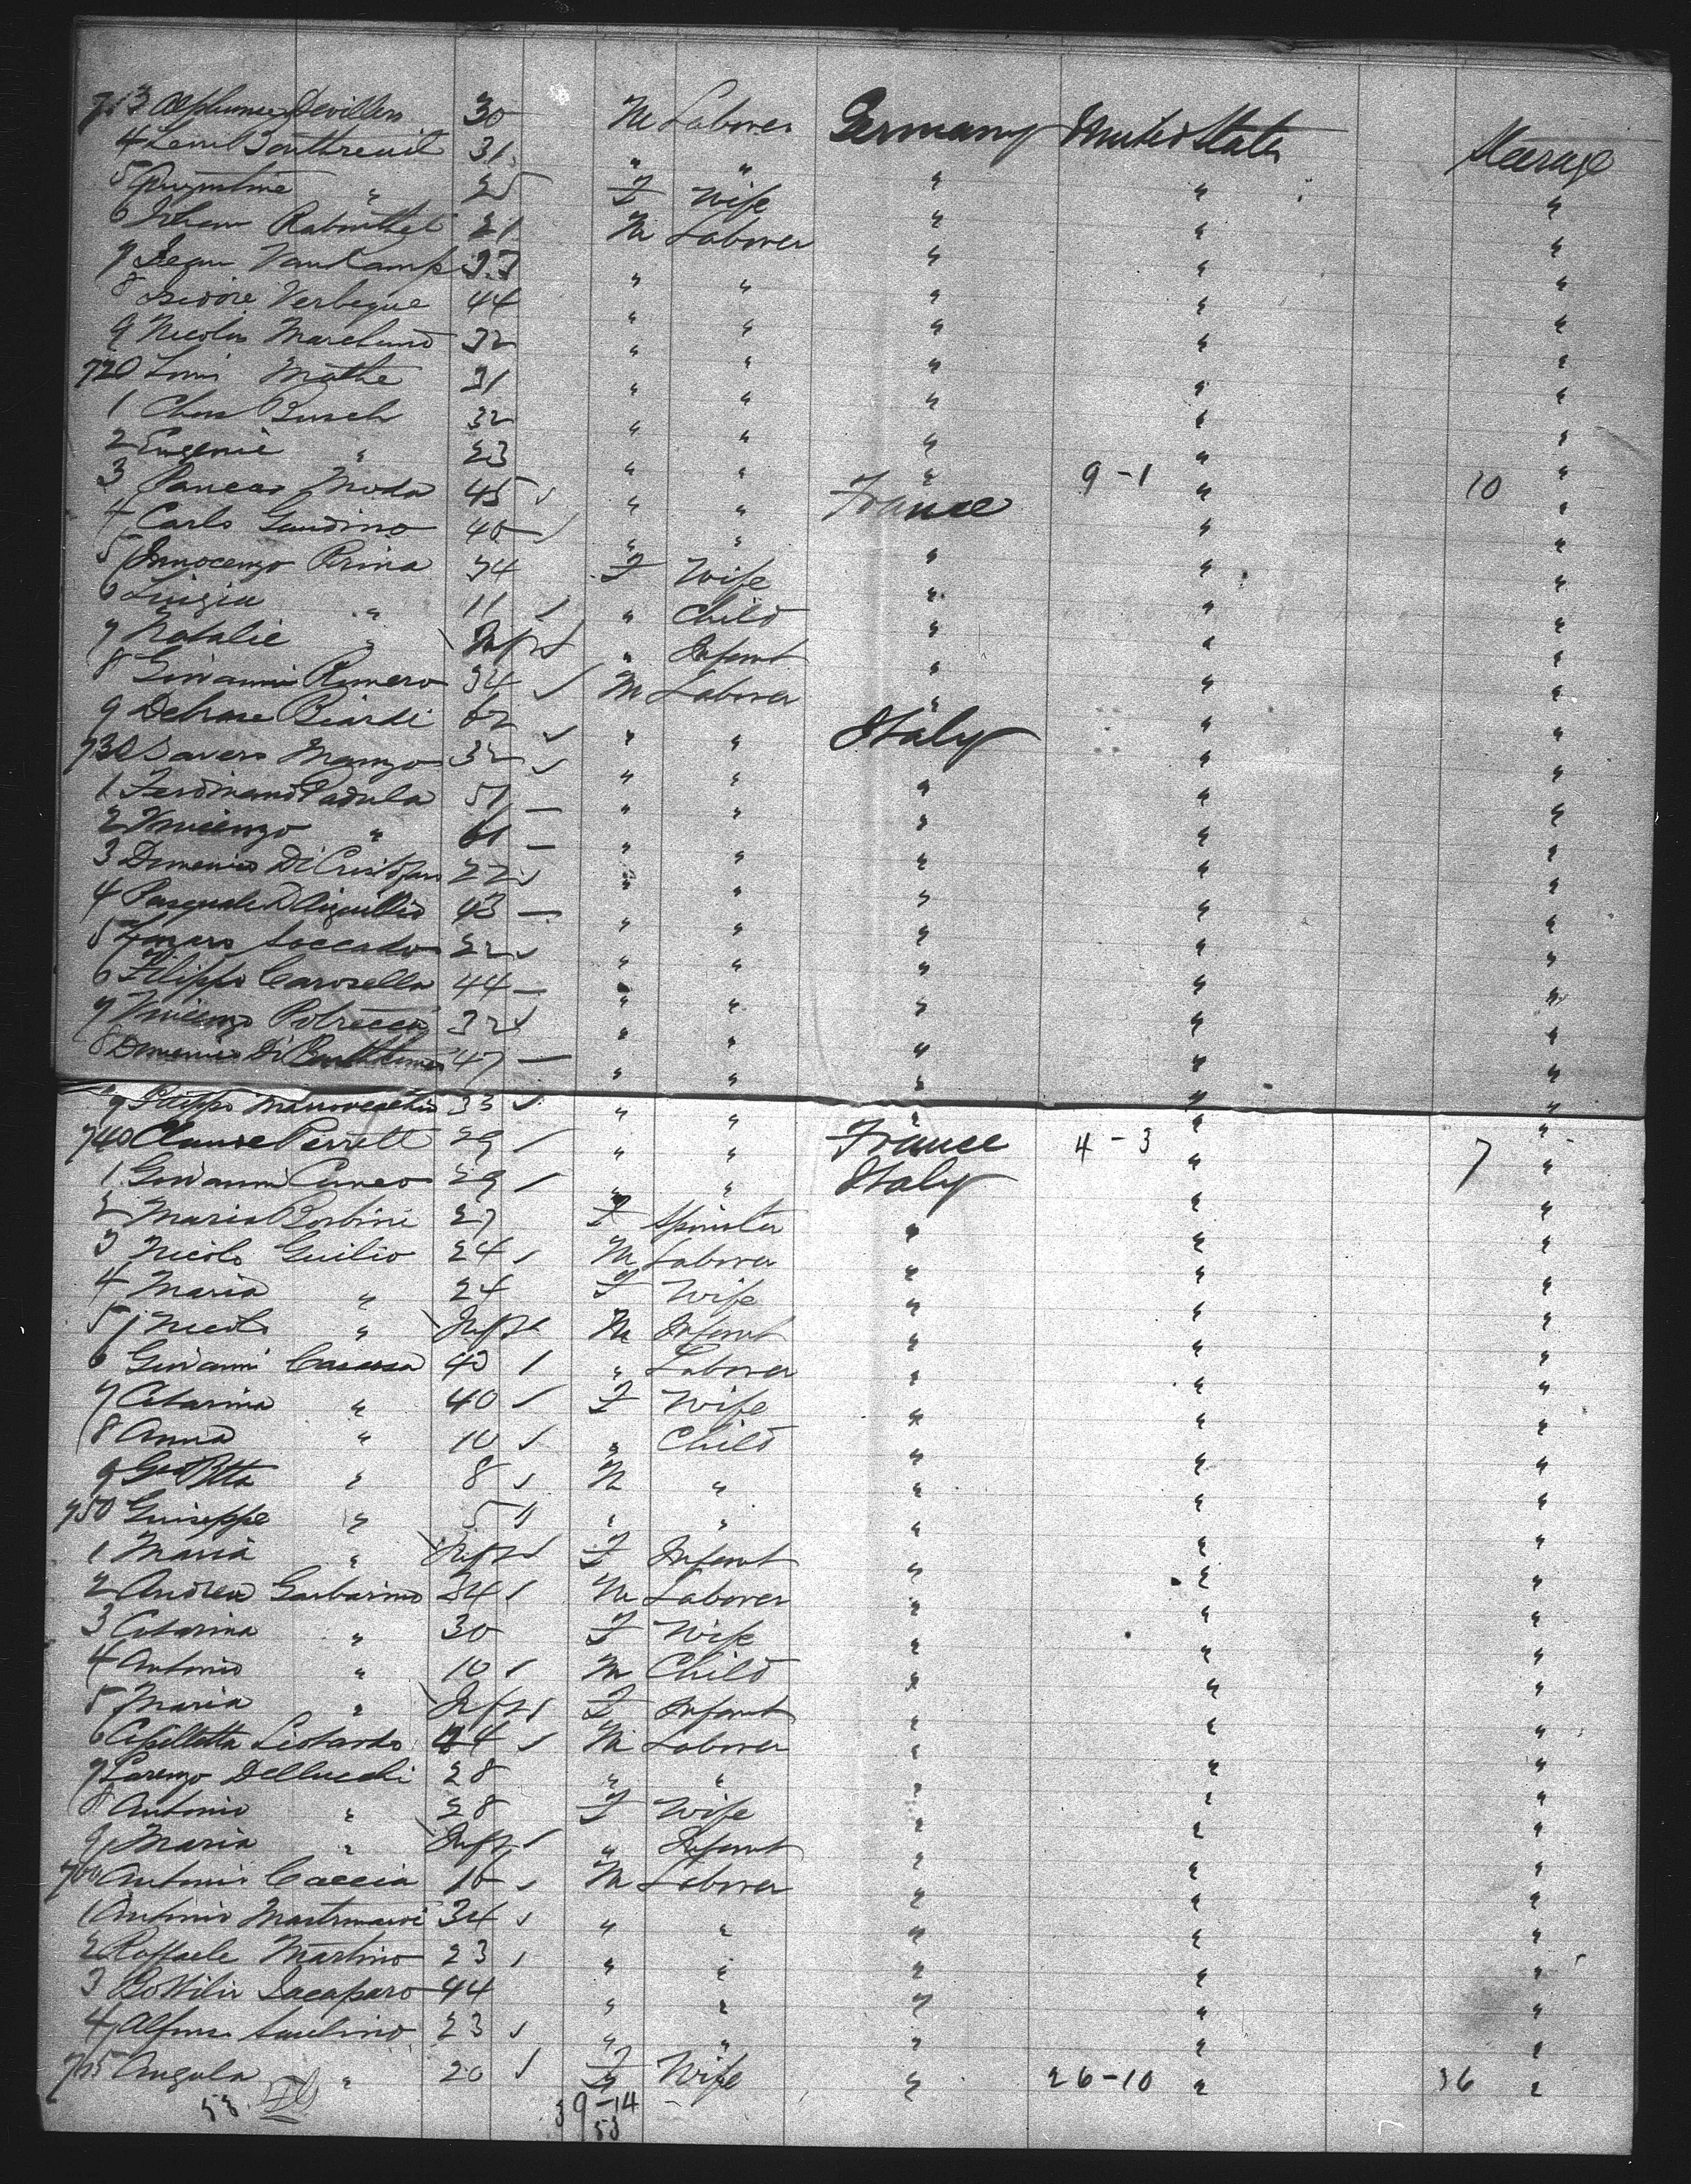 713 Alphonse Devillers 30 M Laborer Germany United States Steerage
4 31 " " " " "
5 Augustine " 25 F Wife " " "
6 21 M Laborer " " "
7 Jean VanKamp 33 " " " " "
8 Isidore Verbeque 44 " " " " "
9 Nicolas Marchand 32 " " " " "
720 Louis Mathe 31 " " " " "
1 Chas Busch 32 " " " " "
2 Eugenie " 23 " " " 9-1 " 10 "
3 Moda 45 " " France " "
4 Carlo Gandino 40 " " " " "
5 Innocenzo Prina 34 F Wife " " "
6 Luigia " 11 " Child " " "
7 Natalie " Inft " Infant " " "
8 Giovanni Romero 34 M Laborer " " "
9 62 " " Italy " "
730 Savero Manzo 32 " " " " "
1 Ferdinand Padula 51 " " " " "
2 Vincenzo " 61 " " " " "
3 Domenico Di Cristofaro 22 " " " " "
4 Pasquale 43 " " " " "
5 22 " " " " "
6 Filippo Carosella 44 " " " " "
7 Vincenzo 32 " " " " "
8 Domenico Di 47 " " " " "
9 Filippo 33 " " " "
740 Claude Perrett 29 " " France 4-3 " 7 "
1 Giovanni Cuneo 29 " " Italy " "
2 Maria Borbini 27 F Spinster " " "
3 Nicolo Guilio 24 M Laborer " " "
4 Maria " 24 F Wife " " "
5 Nicolo " Inft M Infant " " "
6 Giovanni Casassa 40 " Laborer " " "
7 Catarina " 40 F Wife " " "
8 Anna " 10 " Child " " "
9 Gio Btta " 8 M " " " "
750 Guiseppe " 5 " " " " "
1 Maria " Inft F Infant " " "
2 Andrea Garbarino 34 M Laborer " " "
3 Catarina " 30 F Wife " " "
4 Antonio " 10 M Child " " "
5 Maria " Inft F Infant " " "
6 44 M Laborer " " "
7 Lorenzo Dellucchi 28 " " " " "
8 Antonio " 28 F Wife " " "
9 Maria " Inft " Infant " " "
760 Antonio Caccia 16 M Laborer " " "
1 Antonio 34 " " " " "
2 Raffaele Martino 23 " " " " "
3 44 " " " " "
4 Alfonso 23 " " " " "
765 Angela " 20 F Wife " 26-10 " 36 "
53 39-14
53